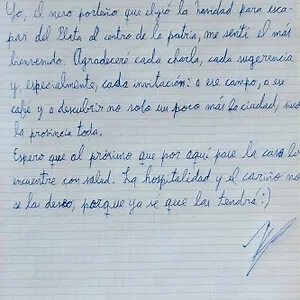 Yo, el mero porteño que eligió la navidad para esca-
par del Plata al centro de la patria, me sentí el más
bienvenido. Agradeceré cada charla, cada sugerencia
y, especialmente, cada invitación: a ese campo, a ese
café y a descubrir no solo un poco más la ciudad, sino
la provincia toda.
Espero que al próximo que por aquí pase la casa lo
encuentre con salud. La hospitalidad y el cariño no
se la deseo, porque ya sé que las tendrá :)